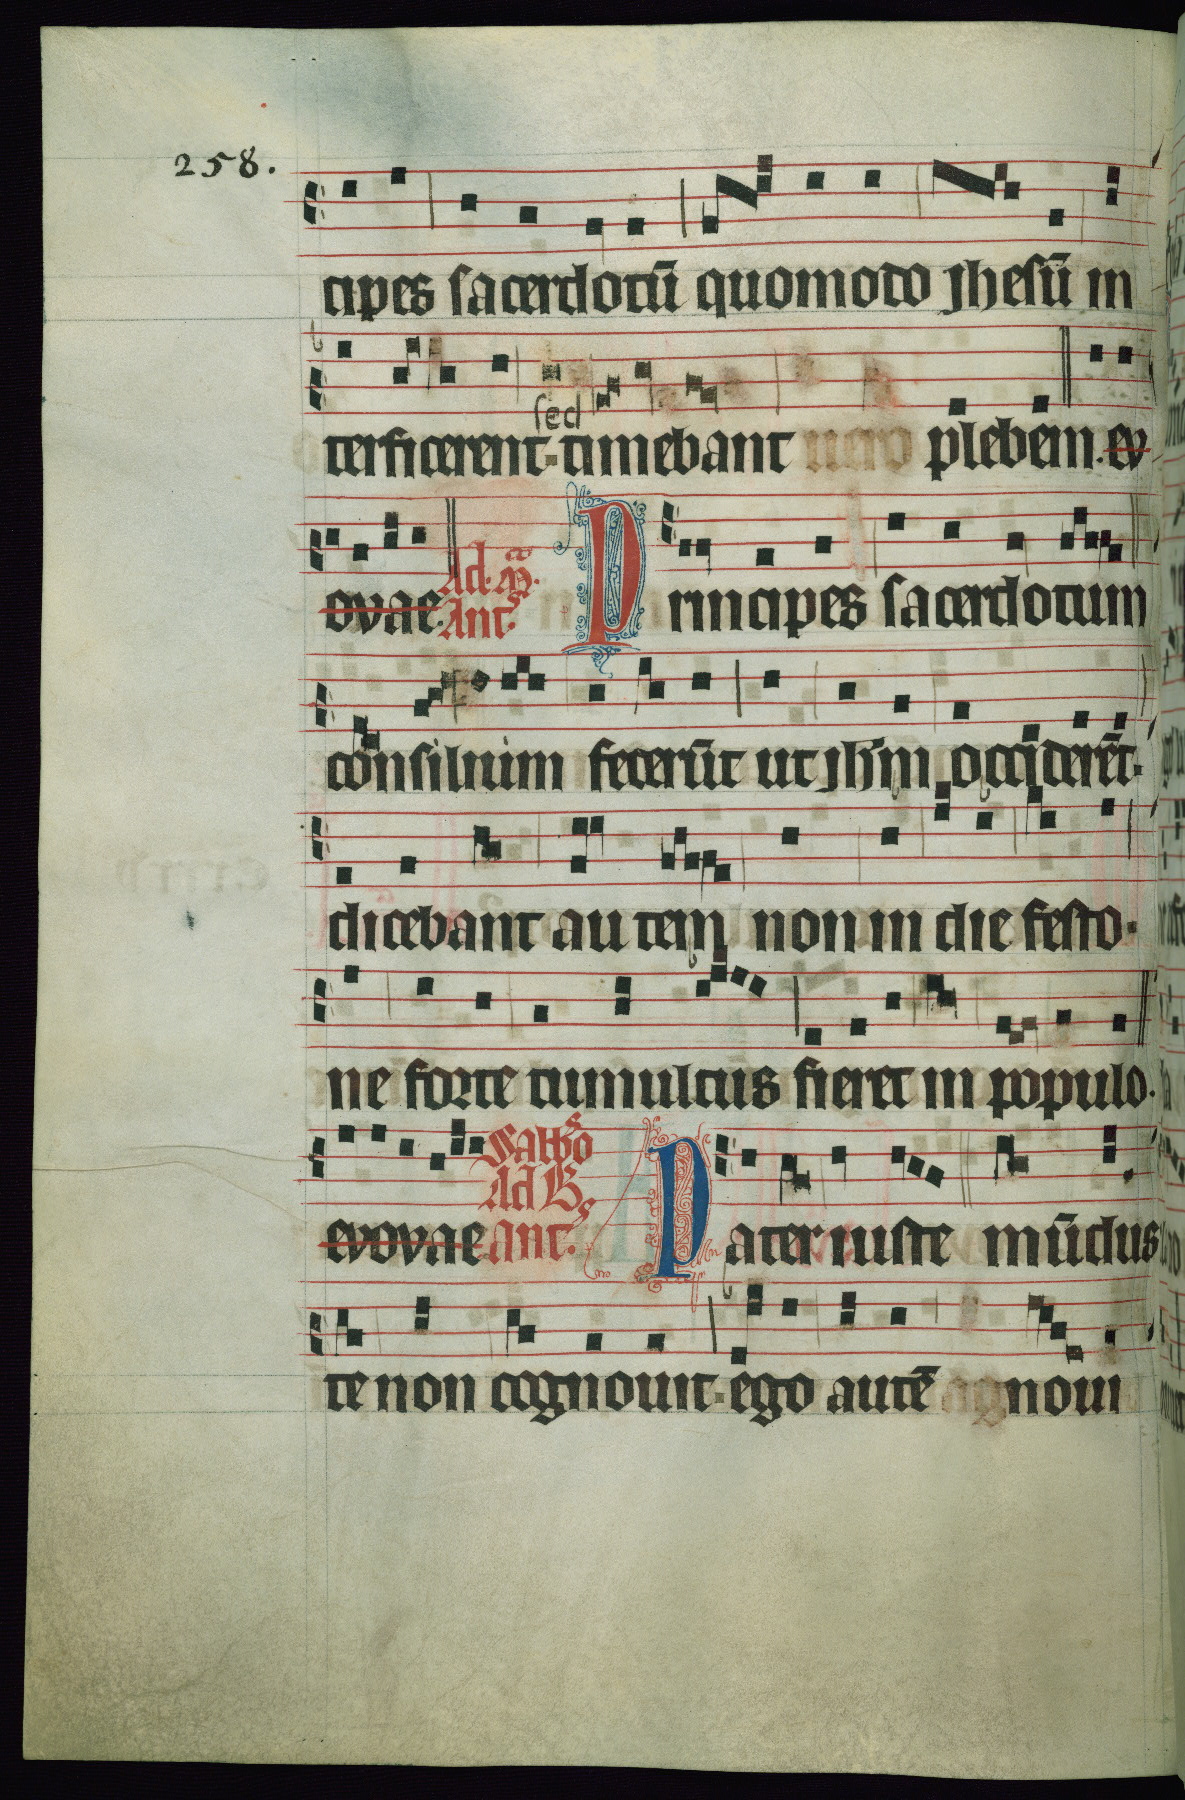 258.
cipes sacerdotū quomodo jhesū in
sed
terficerent timebant uero plebem. ev
ovae. Ad. Ant. Principes sacerdotum
consilium fecerūt ut jhm occiderēt.
dicebant autem non in die festo.
ne forte tumultus fieret in populo.
evovae Sabbo Ad B ant. Pater iuste mūdus
te non cognouit. ego autē agnoui